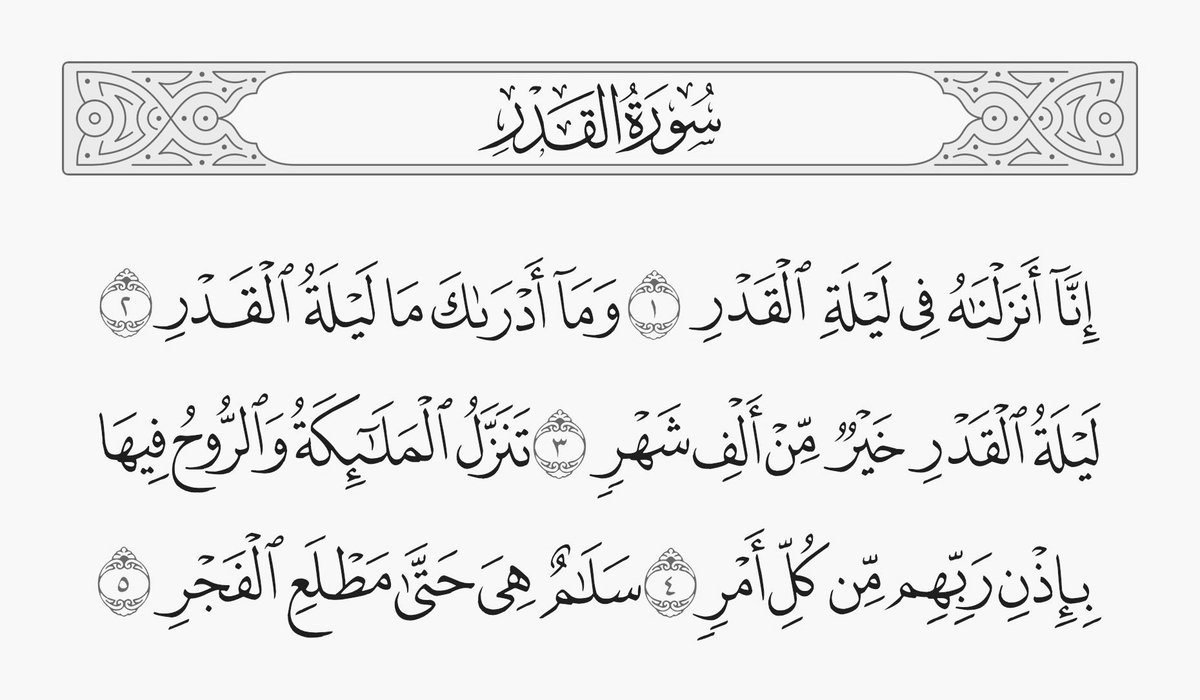 سُورَةُ القَدْرِ
إِنَّآ أَنزَلْنَٰهُ فِى لَيْلَةِ ٱلْقَدْرِ ١ وَمَآ أَدْرَىٰكَ مَا لَيْلَةُ ٱلْقَدْرِ ٢
لَيْلَةُ ٱلْقَدْرِ خَيْرٌ مِّنْ أَلْفِ شَهْرٍ ٣ تَنَزَّلُ ٱلْمَلَٰٓئِكَةُ وَٱلرُّوحُ فِيهَا
بِإِذْنِ رَبِّهِم مِّن كُلِّ أَمْرٍ ٤ سَلَٰمٌ هِىَ حَتَّىٰ مَطْلَعِ ٱلْفَجْرِ ٥